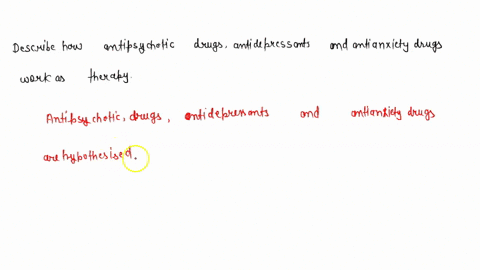 Describe how antipsychotic drugs, antidepressants and antianxiety drugs
work as therapy.
Antipsychotic, drugs, antidepressants and antianxiety drugs
are hypothesised.